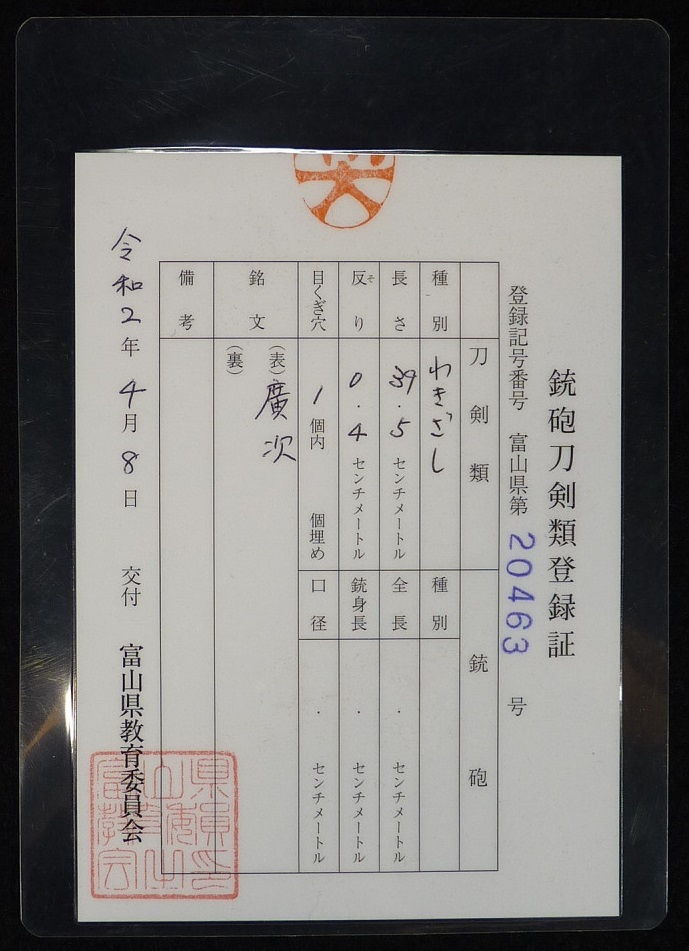 銃砲刀剣類登録証
登録記号番号 富山県第 20463 号
刀剣類 銃砲
種別 わきざし 種別
長さ 39.5 センチメートル 全長 . センチメートル
反り そ 0.4 センチメートル 銃身長 . センチメートル
目くぎ穴 1 個内 個埋め 口径 . センチメートル
銘文 (表) 廣次
(裏)
備考
令和2年4月8日 交付 富山県教育委員会